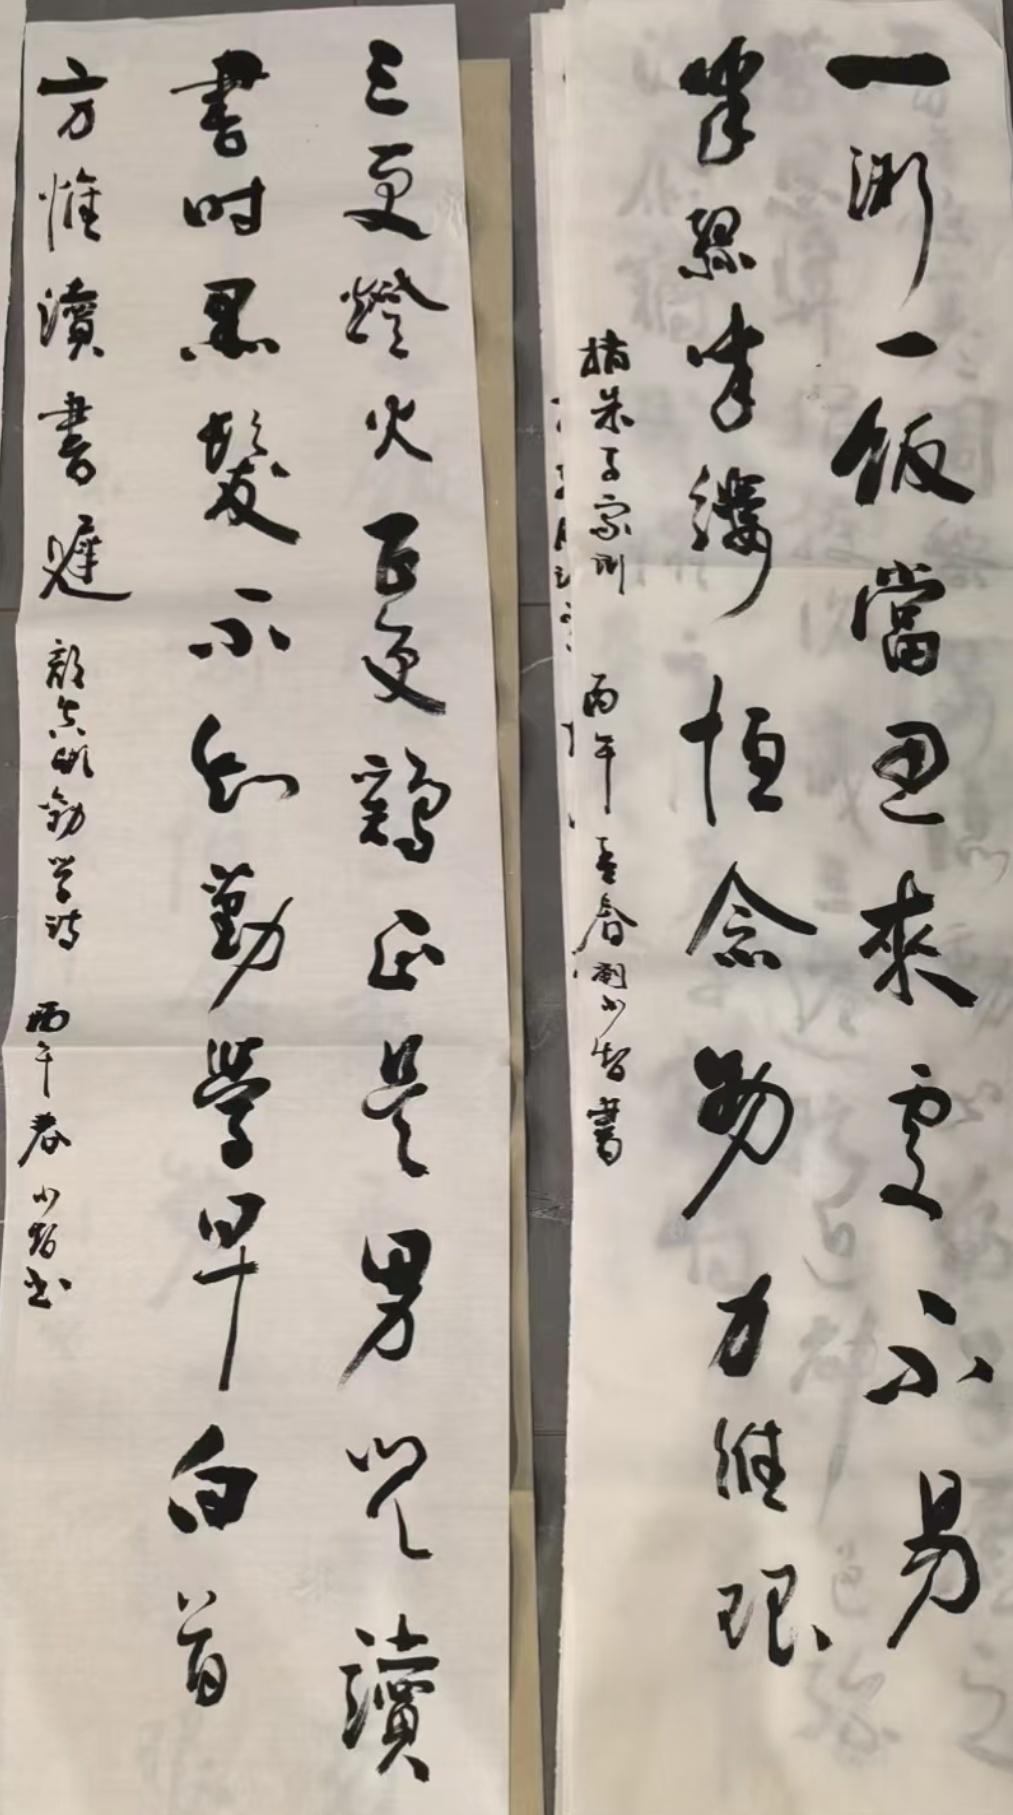 一粥一飯當思來處不易
半絲半縷恒念物力維艱
摘朱子家训 丙午孟春劉小智書
三更燈火五更鷄正是男児讀
書時黑髮不知勤學早白首
方悔讀書遲 颜真卿劝学詩 丙午春小智书